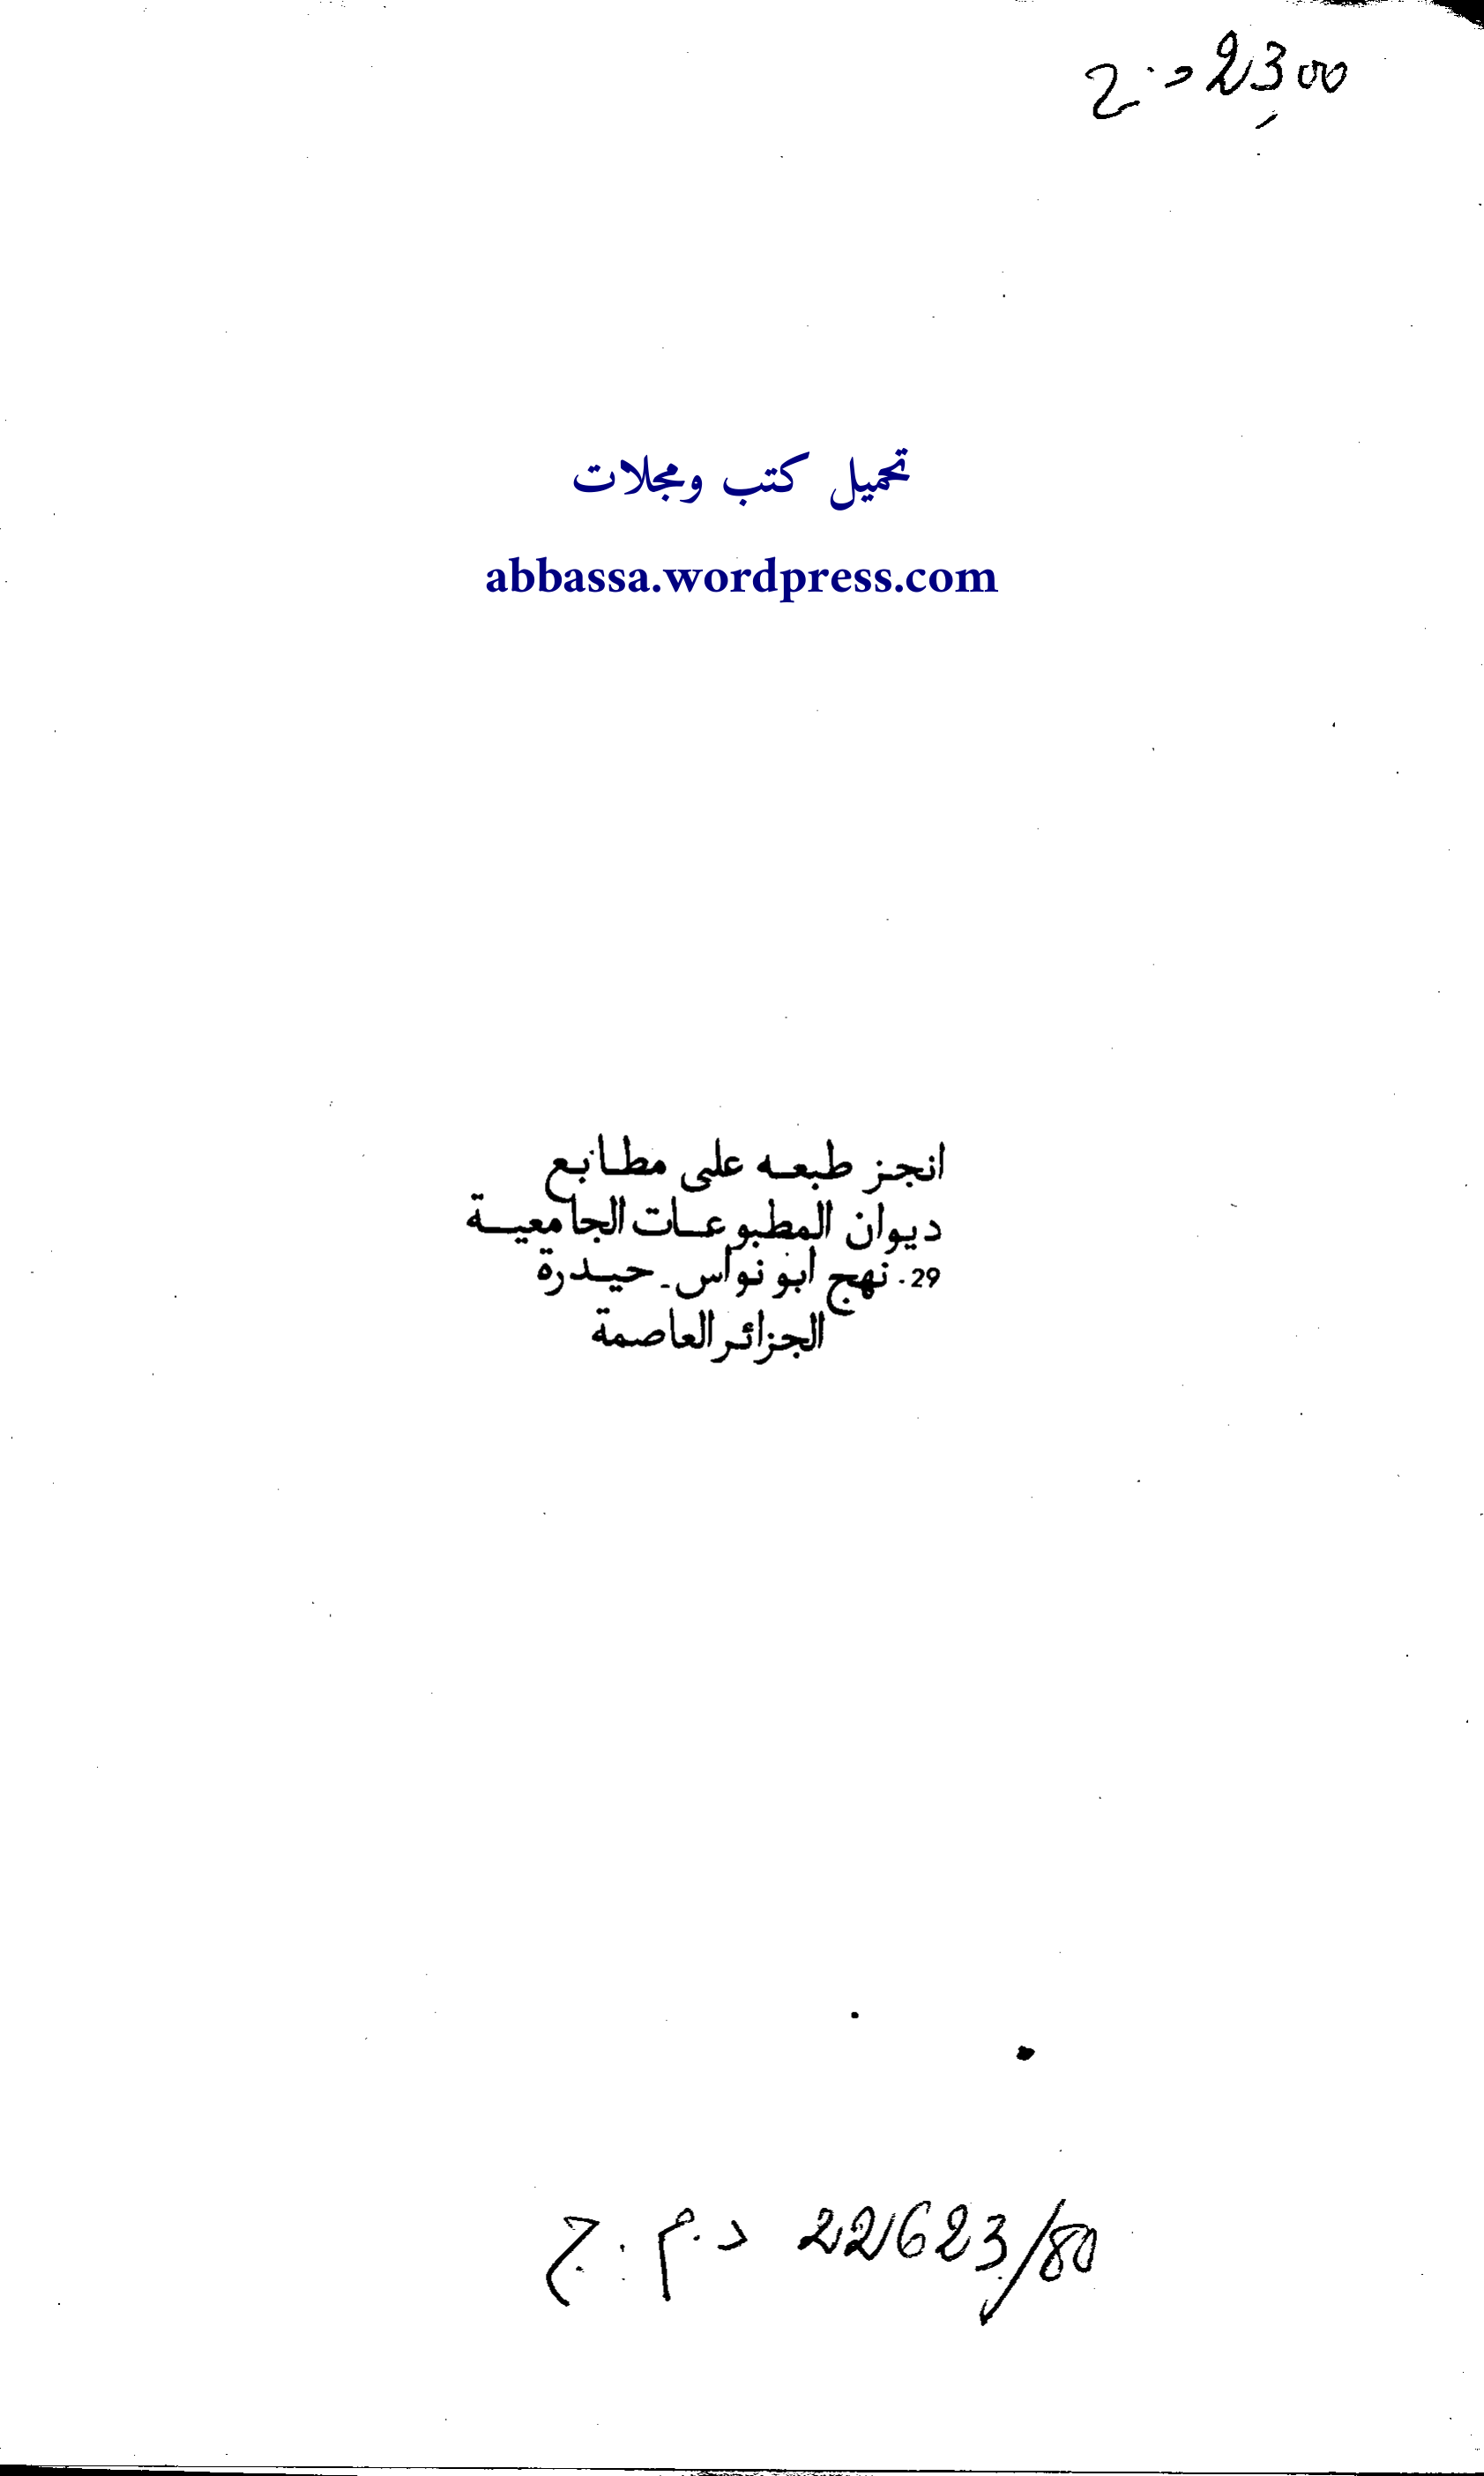 23,00 د.ج
تحميل كتب ومجلات
abbassa.wordpress.com
انجز طبعه على مطابع
ديوان المطبوعات الجامعية
29. نهج ابو نواس - حيدرة
الجزائر العاصمة
د.م.ج 22623/80